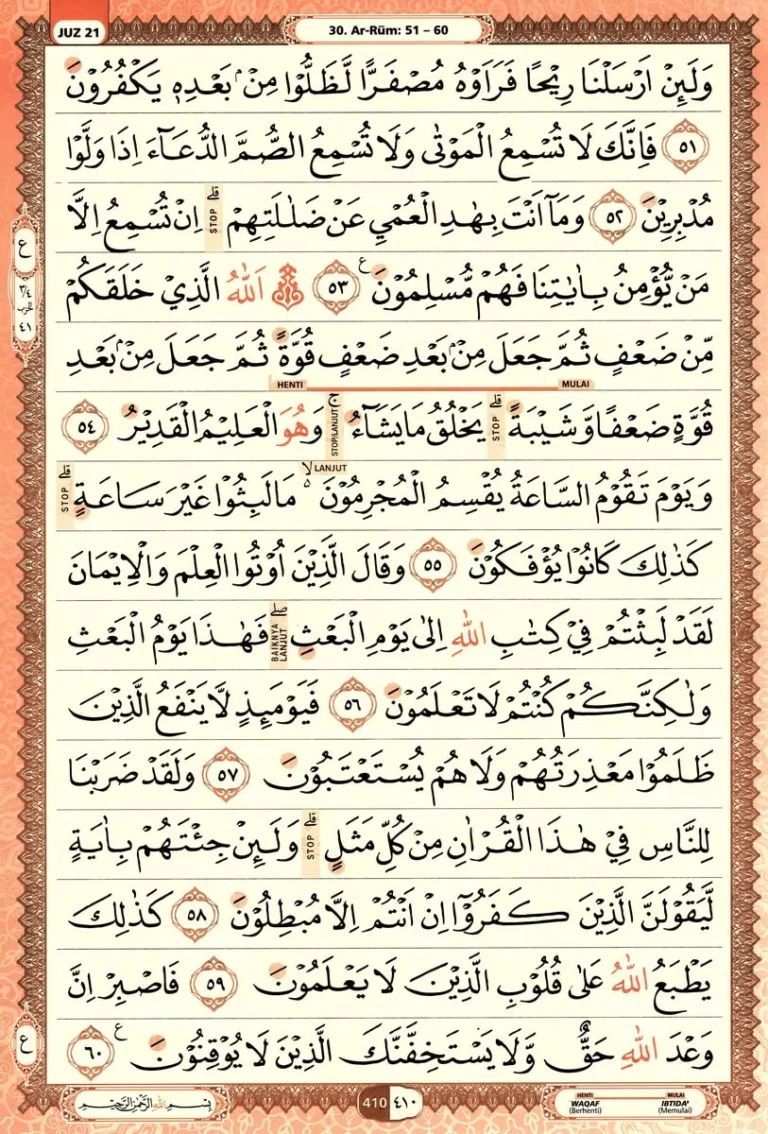 JUZ 21
30. Ar-Rūm: 51 – 60
وَلَىِٕنْ اَرْسَلْنَا رِيْحًا فَرَاَوْهُ مُصْفَرًّا لَّظَلُّوْا مِنْۢ بَعْدِهٖ يَكْفُرُوْنَ
٥١ فَاِنَّكَ لَا تُسْمِعُ الْمَوْتٰى وَلَا تُسْمِعُ الصُّمَّ الدُّعَاۤءَ اِذَا وَلَّوْا
مُدْبِرِيْنَ ٥٢ وَمَآ اَنْتَ بِهٰدِ الْعُمْيِ عَنْ ضَلٰلَتِهِمْ ۗ STOP اِنْ تُسْمِعُ اِلَّا
مَنْ يُّؤْمِنُ بِاٰيٰتِنَا فَهُمْ مُّسْلِمُوْنَ ࣖ ٥٣ ۞ اَللّٰهُ الَّذِيْ خَلَقَكُمْ
مِّنْ ضَعْفٍ ثُمَّ جَعَلَ مِنْۢ بَعْدِ ضَعْفٍ قُوَّةً ثُمَّ جَعَلَ مِنْۢ بَعْدِ
MULAI HENTI
قُوَّةٍ ضَعْفًا وَّشَيْبَةً ۗ STOP يَخْلُقُ مَا يَشَاۤءُ ۚ STOP/LANJUT وَهُوَ الْعَلِيْمُ الْقَدِيْرُ ٥٤
وَيَوْمَ تَقُوْمُ السَّاعَةُ يُقْسِمُ الْمُجْرِمُوْنَ ەۙ LANJUT مَا لَبِثُوْا غَيْرَ سَاعَةٍ ۗ STOP
كَذٰلِكَ كَانُوْا يُؤْفَكُوْنَ ٥٥ وَقَالَ الَّذِيْنَ اُوْتُوا الْعِلْمَ وَالْاِيْمَانَ
لَقَدْ لَبِثْتُمْ فِيْ كِتٰبِ اللّٰهِ اِلٰى يَوْمِ الْبَعْثِۖ BAIKNYA LANJUT فَهٰذَا يَوْمُ الْبَعْثِ
وَلٰكِنَّكُمْ كُنْتُمْ لَا تَعْلَمُوْنَ ٥٦ فَيَوْمَىِٕذٍ لَّا يَنْفَعُ الَّذِيْنَ
ظَلَمُوْا مَعْذِرَتُهُمْ وَلَا هُمْ يُسْتَعْتَبُوْنَ ٥٧ وَلَقَدْ ضَرَبْنَا
لِلنَّاسِ فِيْ هٰذَا الْقُرْاٰنِ مِنْ كُلِّ مَثَلٍ ۗ STOP وَلَىِٕنْ جِئْتَهُمْ بِاٰيَةٍ
لَّيَقُوْلَنَّ الَّذِيْنَ كَفَرُوْٓا اِنْ اَنْتُمْ اِلَّا مُبْطِلُوْنَ ٥٨ كَذٰلِكَ
يَطْبَعُ اللّٰهُ عَلٰى قُلُوْبِ الَّذِيْنَ لَا يَعْلَمُوْنَ ٥٩ فَاصْبِرْ اِنَّ
وَعْدَ اللّٰهِ حَقٌّ وَّلَا يَسْتَخِفَّنَّكَ الَّذِيْنَ لَا يُوْقِنُوْنَ ࣖ ٦٠
ع
٣/٤
٤١
ع
بِسْمِ اللّٰهِ الرَّحْمٰنِ الرَّحِيْمِ
410 ٤١٠
HENTI MULAI
WAQAF IBTIDA'
(Berhenti) (Memulai)